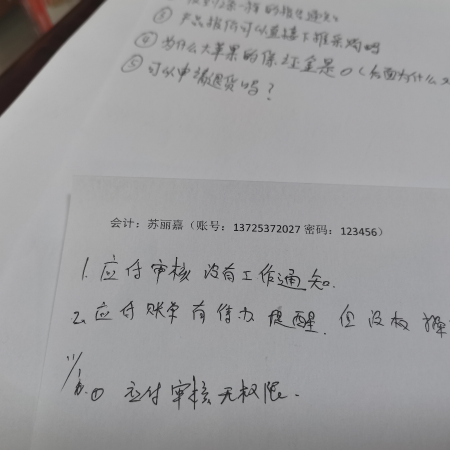 ③ 产品报价可以直接下推采购吗
④ 为什么大苹果的保证金是0(后面为什么又
⑤ 可以申请退货吗?
会计:苏丽嘉(账号:13725372027 密码:123456)
1. 应付审核 没有工作通知.
2. 应付账单有待办提醒. 但没权
① 应付审核无权限.